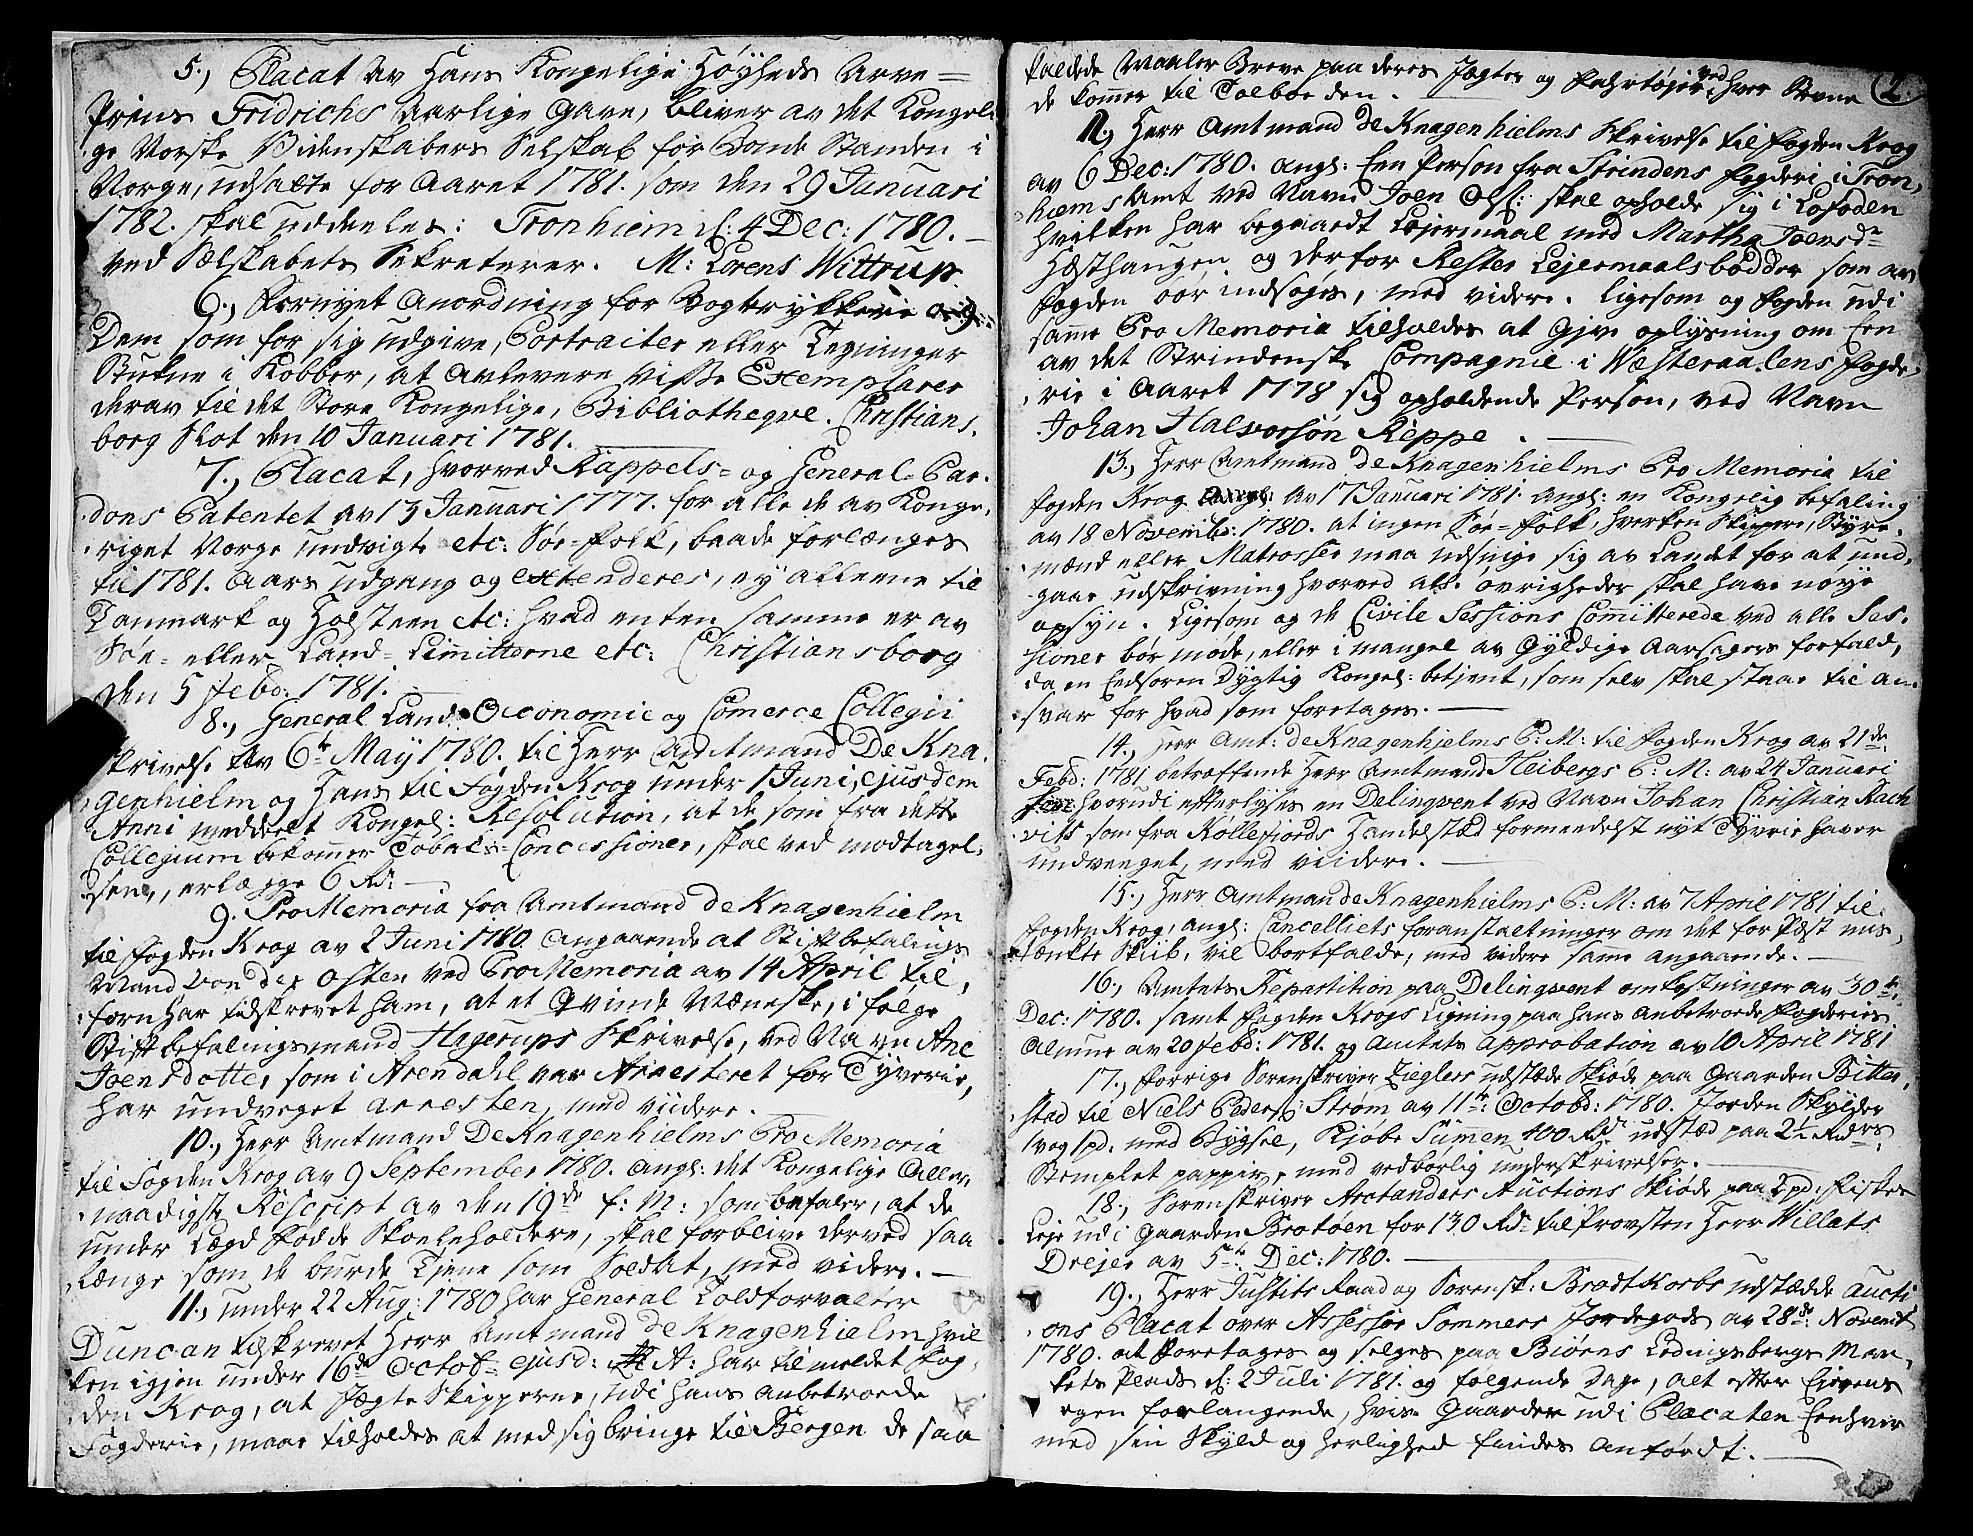 5., Placat Av Hans Kongelige Høyheds Arve=
Prins Fridrichs Aarlige Gave, bliver av det Kongeli,
ge Norske Videnskabers Selskab for Bonde Standen i
Norge, udsatte for Aaret 1781. som den 29 Januari
1782. skal uddeeles: Tronhiem d: 4 Dec: 1780. —
ved Sælskabets Sekreterer. M: Lorens Wittrup.
6., Fornyet Anordning for Bogtrykkere og
Dem som for sig udgive, Portraiter eller Tegninger
Stukne i Kobber, at Avlevere visse Exemplarer
derav til det Store Kongelige, Bibliotheqve. Christians,
borg Slot den 10 Januari 1781. —
7., Placat, hvorved Rappels= og General-Par,
dons Patentet av 13 Januari 1777. for alle de av Konge,
riget Norge undvigte etc: Søe-Folk, baade forlænges
til 1781. Aars udgang og extenderes, ey alleene til
Danmark og Holsteen etc: hvad enten samme er av
Søe- eller Land-Limitterne etc: Christiansborg
den 5 Febr: 1781. —
8., General Land Oeconomie og Comerce Collegii
skrivelse Av 6te May 1780. til Herr Amtmand De Kna,
genhielm og Hans til Fogden Krog under 1 Juni, ejusdem
Anni meddeelt Kongel: Resolution, at de som fra dette
Collegium bekomer Tobaks-Concessioner, skal ved modtagel,
sen, erlægge 6 Rdr —
9. Pro Memoria fra Amtmand de Knagenhielm
til Fogden Krog av 2 Juni 1780. Angaaende at Stiftbefalings
Mand von der Osten ved Pro Memoria av 14 April til,
forn har tilskrevet ham, at et Qvinde Mæneske, i følge
Stiftbefalingsmand Hagerups Skrivelse, ved Navn Ane
Joensdotter, som i Arendahl var Arresteret for Tyverie,
har undveget arresten, med viidere. —
10., Herr Amtmand De Knagenhielms Pro Memoria
til Fogden Krog av 9 September 1780. Angl: det Kongelige Aller,
naadigste Rescript av den 19de f: M: som befaler, at de
under Lægd fødde Skoeleholdere, skal forblive derved saa
længe som de burde tjene som Soldat, med videre. —
11., under 22 Aug: 1780 har General Toldforvalter
Duncan tilskrevet Herr Amtmand de Knagenhielm hvil
ken igjen under 16de Octob: ejusd: A: har tilmeldet Fog,
den Krog, at Jægte Skipperne, udi hans anbetroede
Fogderie, maae tilholdes at med sig bringe til Bergen de saa
kaldede Maaler Breve paa deres Jægter og Fahrtøjer, ved hver Revne 2.
de komer til Tolboeden. —
12., Herr Amtmand de Knagenhielms Skrivelse til Fogden Krog
av 6 Dec: 1780. angl: Een Person fra Strindens Fogderi i Tron,
hiems Amt ved Navn Joen Ols: skal opholde sig i Lofoden
hvilken har begaaedt Lejermaal med Martha Joensdr
Hæsthaugen og derfor Rester Lejermaalsbødder som av
Fogden bør indsøges, med videre. Ligesom og Fogden udi
samme Pro Memoria tilholdes at Give oplysning om Een
av det Strindenske Compagnie i Wæsteraalens Fogde,
rie i Aaret 1778 sig opholdende Person, ved Navn
Johan Halvorsøn Reppe. —
13., Herr Amtmand de Knagenhielms Pro Memoria til
Fogden Krog Av 17 Januari 1781. Angl: en Kongelig befaling
av 18 Novemb: 1780. at ingen Søe-Folk, hverken Skippere, Styre,
mænd eller Matrosser maa udsnige sig av Landet for at und,
gaae udskrivning hvorved alle øvrigheder skal have nøye
opsyn. Ligesom og de Civile Sessions Comitterede ved alle Ses,
sioner bør møde, eller i mangel av Gyldige Aarsagers forfald,
da en Eedsoren Dygtig Kongel: betjent, som selv skal staae til an,
svar for hvad som foretages. —
14., Herr Amt: de Knagenhjelms P: M: til Fogden Krog av 21de
Febr: 1781 betræffende Herr Amtmand Heibergs P: M: av 24 Januari
hvorudi efterlyses en Delinqvent ved Navn Johan Christian Rach
vits som fra Kollefjords Handelstæd formeedelst nyt Tyverie haver
undveeget, med viidere. —
15., Herr Amtmand de Knagenhielms P: M: av 7 April 1781 til
Fogden Krog, angl: Cancelliets foranstaltninger om det for Pæst mis,
tænkte Skiib, vil bortfalde, med videre same angaaende. —
16., Amtets Repartition paa Delinqvent omkostninger av 30te
Dec: 1780. samt Fogden Krogs Ligning paa hans Anbetroede Fogderies
Almue av 20 Febr: 1781. og Amtets Approbation av 10 April 1781
17., Forrige Sorenskriver Zieglers udstæde Skiøde paa Gaarden Bitter,
stad til Niels Peders: Strøm av 11te Octobr: 1780. Jorden Skylder
1 vog 1 pd. med Bygsel, Kjøbe Sumen 400 Rdr udstæd paa 2½ Rdrs
Stemplet pappir, med vedbørlig underskrivelser. —
18., Sorenskriver Arctanders Auctions Skiøde paa 2 pd: Fiskes
Leje udi Gaarden Brotøen for 130 Rdr til Provsten Herr Willats
Drejer av 5te Dec: 1780. —
19., Herr Justits Raad og Sorensk: Brodtkorbs udstædde Aucti
ons Placat over Assessor Sommers Jordegods av 28de Novemb
1780. at Foretages og selges paa Biørns Ledingsbergs Mar,
kets Plads d: 2 Juli 1781. og følgende Dage, alt efter Eierens
egen forlangende, hvis Gaarder udi Placaten Eenhver
med sin Skyld og herlighed findes Anførdt. —